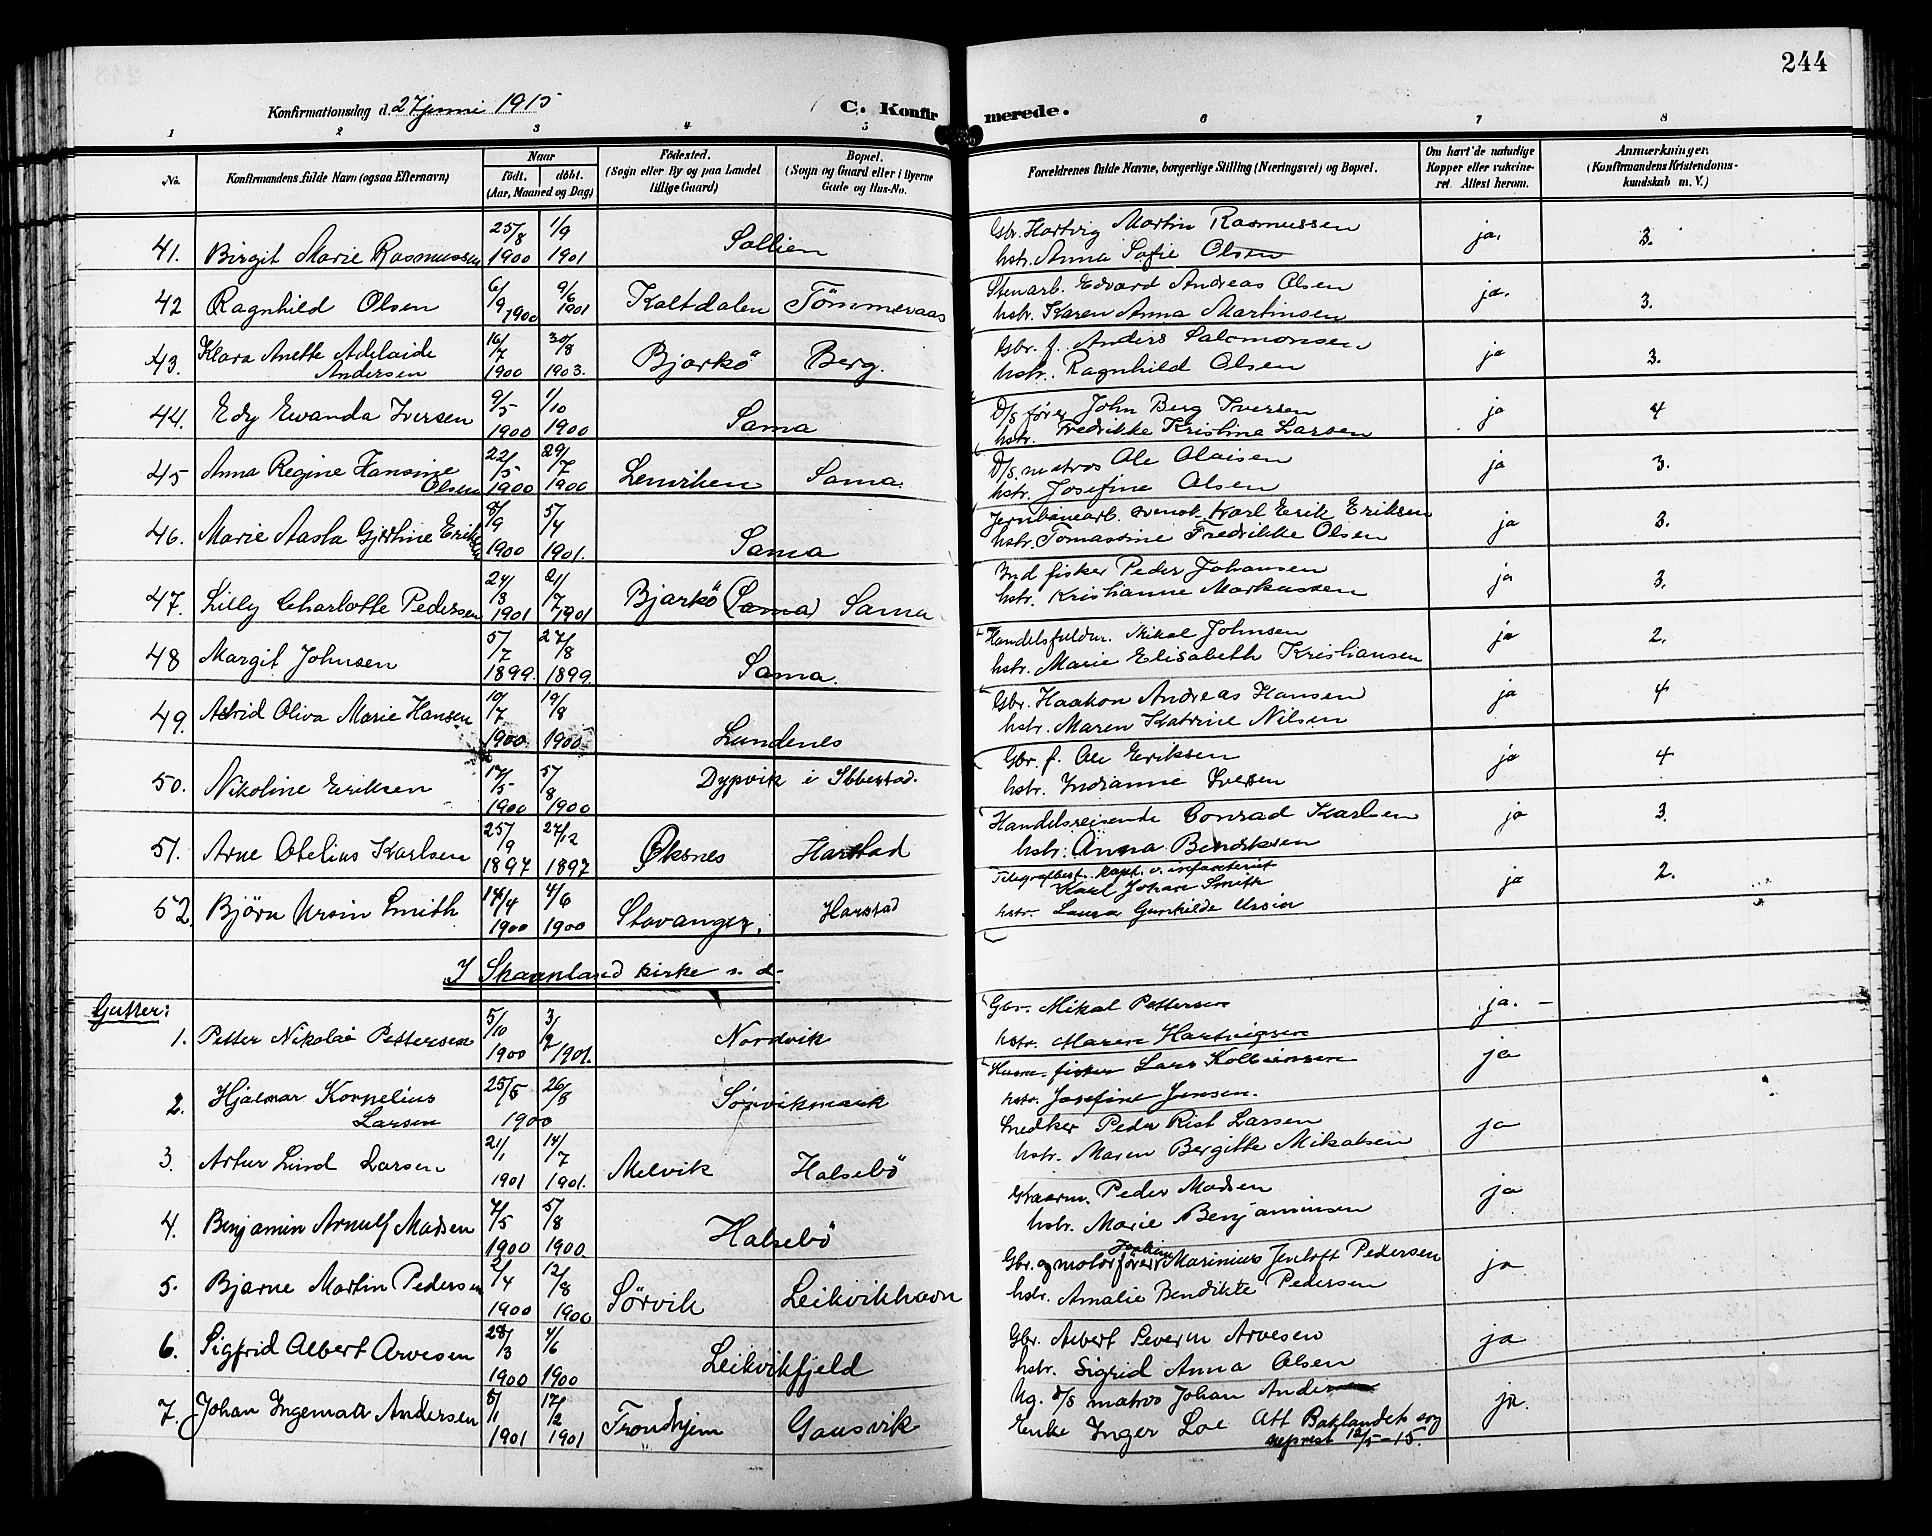 244
Konfirmationsdag d. 27 juni 1915
C. Konfirmerede.
1 2 3 4 5 6 7 8
No.
Konfirmandens fulde Navn (ogsaa Efternavn)
Naar
født. døbt.
(Aar, Maaned og Dag)
Fødested.
(Sogn eller By og paa Landet
tillige Gaard)
Bopæl.
(Sogn og Gaard eller i Byerne
Gade og Hus-No.
Forældrenes fulde Navne, borgerlige Stilling (Næringsvei) og Bopæl.
Om havt de naturlige
Kopper eller vakcine-
ret. Attest herom.
Anmærkninger.
(Konfirmandens Kristendoms-
kundskab m. V.)
41. Birgit Marie Rasmussen 25/8 1900 1/9 1901 Sollien Gbr. Hartvig Martin Rasmussen ja. 3.
hstr. Anna Sofie Olsen
42 Ragnhild Olsen 6/9 1900 9/6 1901 Kaltdalen Tömmeraas Stenarb. Edvard Andreas Olsen ja. 3.
hstr. Karen Anna Martinsen
43. Klara Anette Adelaide 16/7 1900 30/8 1903. Bjarkö Berg. Gbr. f. Anders Salomonsen ja 3.
Andersen hstr. Ragnhild Olsen
44. Edy Ewanda Iversen 9/5 1900 1/10 1900 Sama D/s fører John Berg Iversen ja 4
hstr. Fredrikke Kristine Larsen
45 Anna Regine Hansine 22/5 1900 29/7 1900 Lenviken Sama. D/s matros Ole Olaisen ja 3.
Olsen hstr. Josefine Olsen
46. Marie Aasla Gjertine Eriksen 8/9 1900 5/4 1901. Sama Jernbanearb. svensk Karl Erik Eriksen ja 3.
hstr. Tomassine Fredrikke Olsen
47. Lilly Charlotte Pedersen 24/3 1901 21/7 1901 Bjarkö (Sama) Sama Ind fisker Peder Johansen ja 3.
hstr. Kristianne Markussen
48 Margit Johnsen 5/7 1899. 27/8 1899. Sama. Handelsfuldm. Mikal Johnsen ja 2.
hstr. Marie Elisabeth Kristiansen
49. Astrid Oliva Marie Hansen 10/7 1900. 19/8 1900 Lundenes Gbr. Haakon Andreas Hansen ja 4
hstr. Maren Katrine Nilsen
50. Nikoline Eriksen 17/5 1900 5/8 1900 Dypvik i Ibbestad. Gbr. f. Ole Eriksen ja 4
hstr. Indianne Iversen
51. Arne Otelius Karlsen 25/9 1897 27/12 1897 Øksnes Harstad Handelsreisende Conrad Karlsen ja 3.
hstr: Anna Bendiksen
52. Bjørn Ursin Smith 14/4 1900 4/6 1900 Stavanger. Harstad Telegrafbest. kapt. v. infanteriet ja 2.
Karl Johan Smith
hstr. Laura Gunhilde Ursin
I Skaanland kirke s. d.
Gutter:
1. Petter Nikolai Pettersen 5/10 1900 3/2 1901. Nordvik Gbr. Mikal Pettersen ja. -
hstr. Maren Hartvigsen
2. Hjalmar Kornelius 25/5 26/8 1900 Sørvikmark Husm. fisker Lars Kolbensen ja
Larsen hstr. Josefine Jensen.
3. Artur Lind Larsen 21/1 1901 14/7 1901. Melvik Halsebö Snedker Peder Rist Larsen ja
hstr. Maren Bergitte Mikalsen
4. Benjamin Arnulf Madsen 7/5 1900 5/8 1900. Halsebö Graarm. Peder Madsen ja
hstr. Marie Benjaminsen
5. Bjarne Martin Pedersen 2/4 1900 12/8 1900 Sörvik Leikvikhavn Gbr. og motorfører Joakim Marinius Jentoft Pedersen ja
hstr. Amalie Bendikte Pedersen
6. Sigfrid Albert Arvesen 28/3 1900 4/6 1900 Leikvikfjeld Gbr. Albert Severin Arvesen ja
hstr. Sigrid Anna Olsen
7. Johan Ingemar Andersen 8/1 1901 17/2 1901 Trondhjem Gausvik Ug. D/s matros Johan Andersen ja.
Enke Inger Loe Att Baklandets sog
neprest 12/5-15.